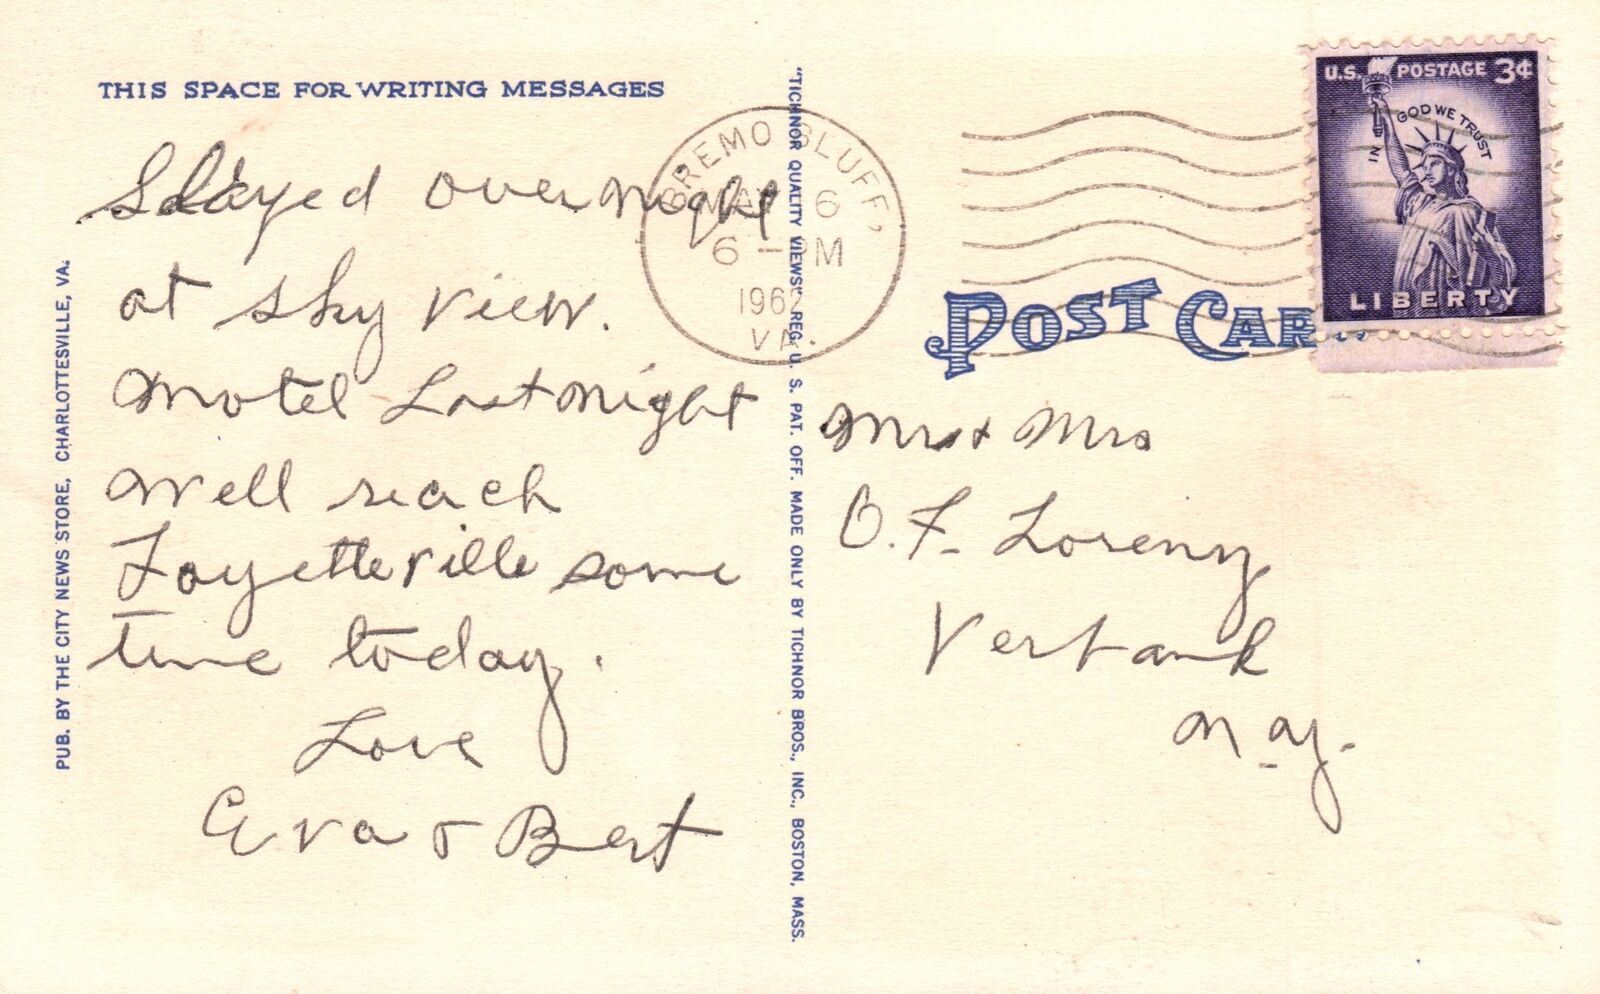 THIS SPACE FOR WRITING MESSAGES
Stayed over night
at Sky View.
Motel Last night
Well reach
Fayetteville some
time today.
Love
Eva & Bert
PUB. BY THE CITY NEWS STORE, CHARLOTTESVILLE, VA.
"TICHNOR QUALITY VIEWS," REG. U. S. PAT. OFF. MADE ONLY BY TICHNOR BROS., INC., BOSTON, MASS.
BREMO BLUFF,
6
6 - PM
1962
VA.
U.S. POSTAGE 3¢
IN GOD WE TRUST
LIBERTY
POST CAR
Mr & Mrs
O. F. Lorenz
Verbank
N.Y.